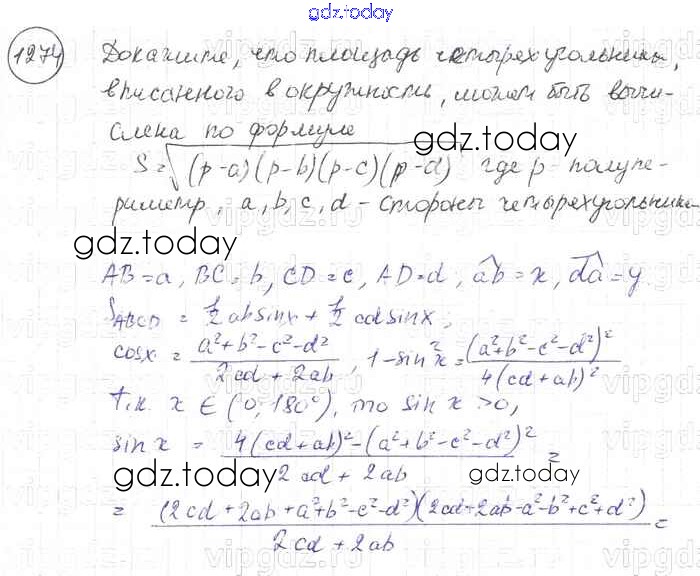 gdz.today
1274 Докажите, что площадь четырехугольника,
вписанного в окружности, может быть вычи-
слена по формуле
S = √(p-a)(p-b)(p-c)(p-d) где p - полупе-
риметр, a, b, c, d - стороны четырехугольника
gdz.today
AB = a, BC = b, CD = c, AD = d, ab = x, da = y
S_ABCD = 1/2 ab sin x + 1/2 cd sin x;
cos x = (a² + b² - c² - d²)/(2cd + 2ab), 1 - sin² x = (a² + b² - c² - d²)²/4(cd + ab)²
т.к. x ∈ (0, 180°), то sin x > 0,
sin x = (4(cd + ab)² - (a² + b² - c² - d²)²)/(2cd + 2ab) =
gdz.today gdz.today
= (2cd + 2ab + a² + b² - c² - d²)(2cd + 2ab - a² - b² + c² + d²)/(2cd + 2ab) =